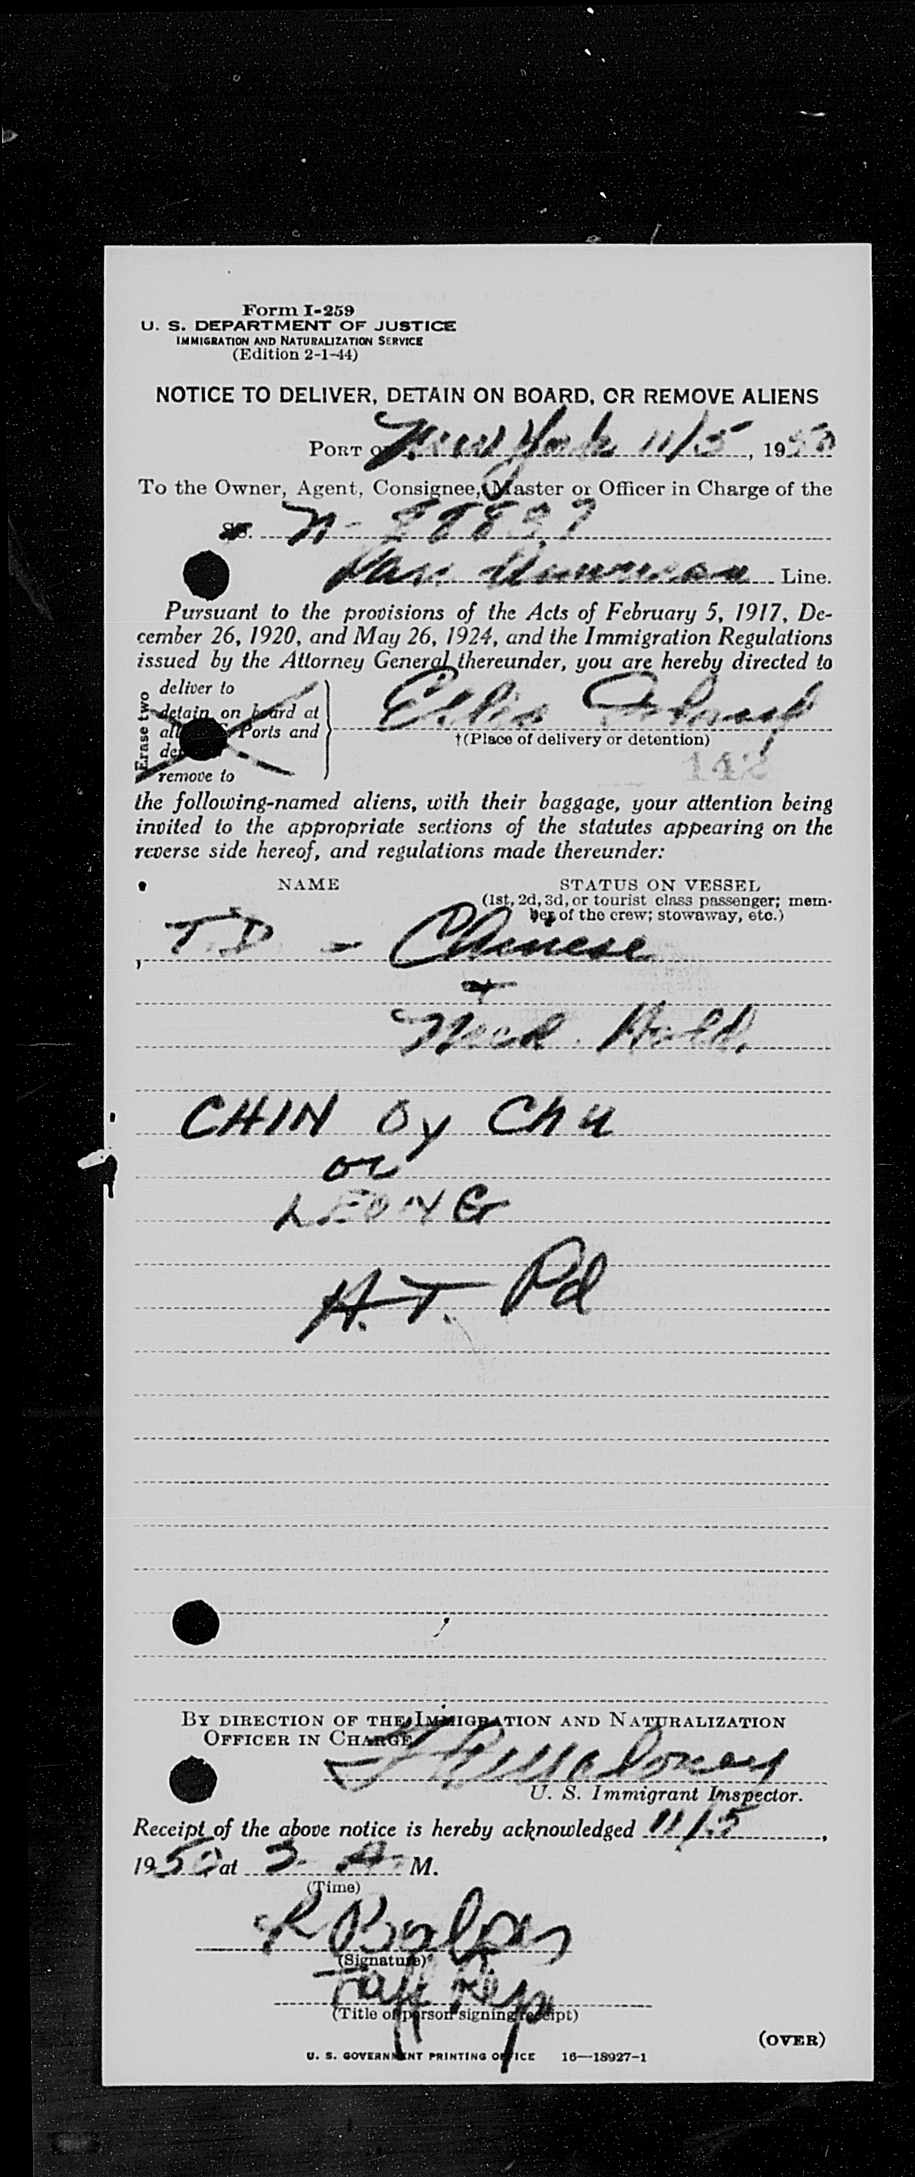 Form I-259
U. S. DEPARTMENT OF JUSTICE
IMMIGRATION AND NATURALIZATION SERVICE
(Edition 2-1-44)
NOTICE TO DELIVER, DETAIN ON BOARD, OR REMOVE ALIENS
PORT OF New York 11/5, 1950
To the Owner, Agent, Consignee, Master or Officer in Charge of the
SS. N-88837
Pan American Line.
Pursuant to the provisions of the Acts of February 5, 1917, De-
cember 26, 1920, and May 26, 1924, and the Immigration Regulations
issued by the Attorney General thereunder, you are hereby directed to
Erase two
deliver to
detain on board at
all Ports and
remove to
Ellis Island
†(Place of delivery or detention)
142
the following-named aliens, with their baggage, your attention being
invited to the appropriate sections of the statutes appearing on the
reverse side hereof, and regulations made thereunder:
NAME STATUS ON VESSEL
(1st, 2d, 3d, or tourist class passenger; mem-
ber of the crew; stowaway, etc.)
T.D - Chinese
+
Med. Hold.
CHIN Oy Chu
or
LEONG
H.T. Pd
BY DIRECTION OF THE IMMIGRATION AND NATURALIZATION
OFFICER IN CHARGE
Maloney
U. S. Immigrant Inspector.
Receipt of the above notice is hereby acknowledged 11/5,
1950 at 3 A. M.
(Time)
(Signature)
(Title of person signing receipt)
(OVER)
U. S. GOVERNMENT PRINTING OFFICE 16—18927-1